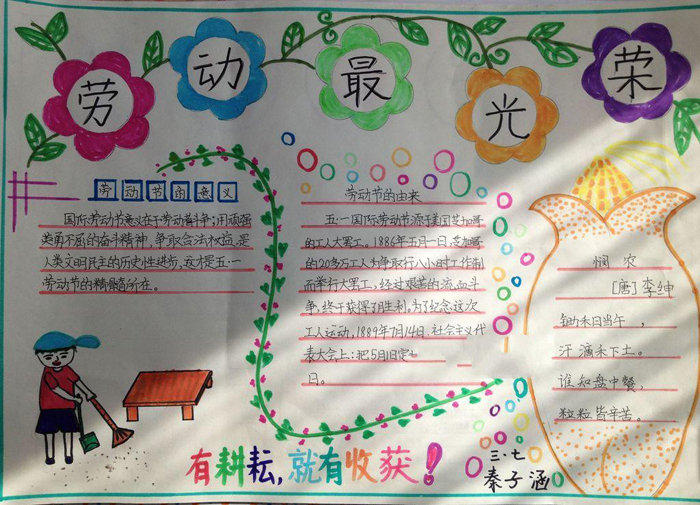 劳动最光荣
劳动节的意义
国际劳动节意义在于劳动者斗争:用顽强
英勇不屈的奋斗精神,争取合法权益,是
人类文明民主的历史性进步,这才是五·一
劳动节的精髓所在。
劳动节的由来
五·一国际劳动节源于美国芝加哥
的工人大罢工。1886年五月一日,芝加哥
的20多万工人为争取行八小时工作制
而举行大罢工,经过艰苦的流血斗
争,终于获得了胜利。为了纪念这次
工人运动,1889年7月14日,社会主义代
表大会上:把5月1日定
日。
悯农
[唐]李绅
锄禾日当午,
汗滴禾下土。
谁知盘中餐,
粒粒皆辛苦。
有耕耘,就有收获!
三·七
秦子涵